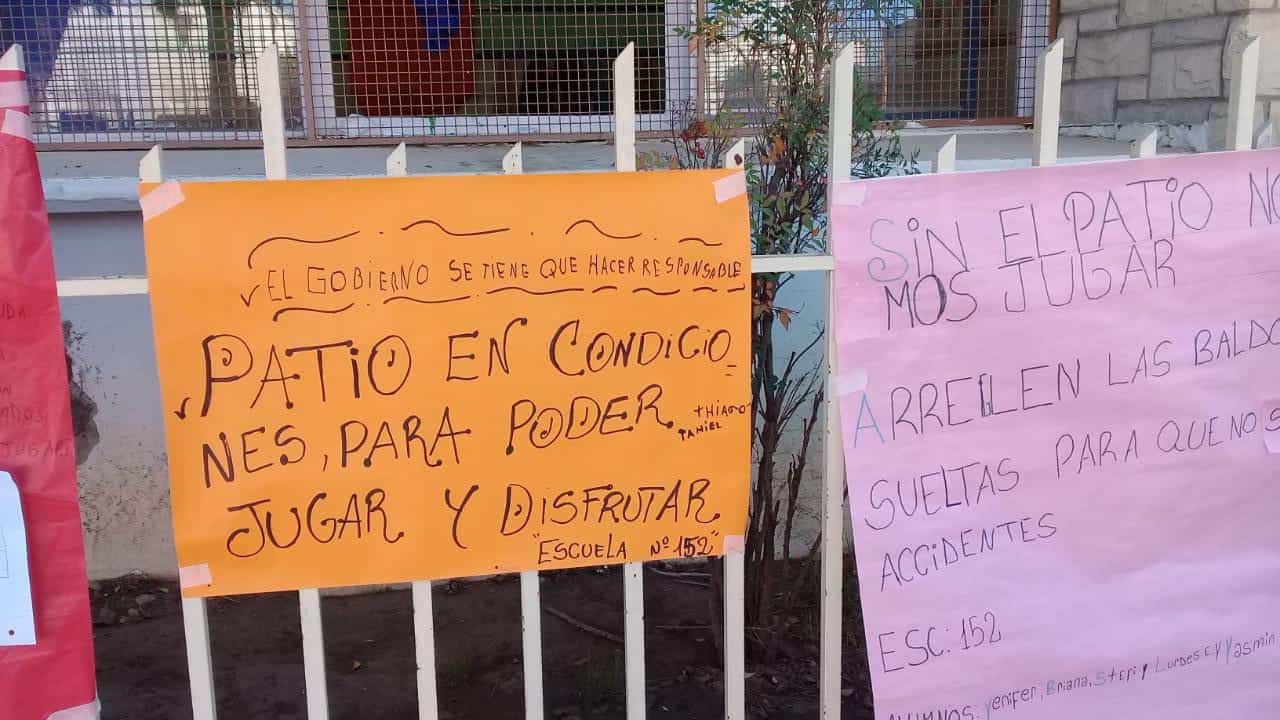 EL GOBIERNO SE TIENE QUE HACER RESPONSABLE
PATIO EN CONDICIO=
NES, PARA PODER
THIAGO
TAHIEL
JUGAR Y DISFRUTAR
"ESCUELA Nº 152"
SIN EL PATIO NO
MOS JUGAR
ARREGLEN LAS BALDO
SUELTAS PARA QUE NO S
ACCIDENTES
ESC: 152
ALUMNOS: Yenifer, Briana, Stefi y Lurdes C y Yasmin
JUGAR